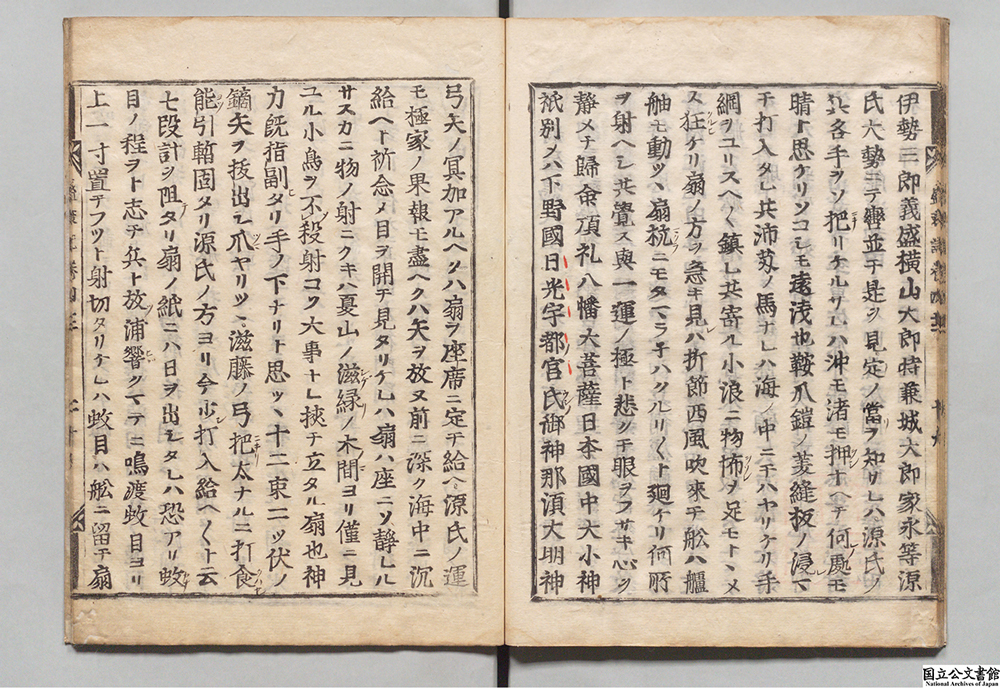 伊勢三郎義盛横山太郎時兼城太郎家永等源
氏大勢ニテ轡並テ是ヲ見定ノ當ヲ知リレハ源氏ノ
兵各手ヲソ把リケルサレハ沖モ渚モ押ナヘテ何處モ
晴ト思ケリソコシモ遠浅也鞍爪鎧ノ菱縫板ノ浸マ
テ打入タレ共沛艾ノ馬ナレハ海ノ中ニテハヤリケリ手
綱ヲユリスヘ〱鎮レ共寄ル小浪ニ物怖ヲ足モトヽメ
ス狂ケリ扇ノ方ヲ急キ見レハ折節西風吹來テ舩ハ艫
舳モ動ツヽ扇杭ニモタマラ子ハクルリ〱ト廻ケリ何所
ヲ射ヘシ共覺ス與一運ノ極ト悲ツテ眼ヲフサキ心ヲ
静メテ歸命頂礼八幡大菩薩日本國中大小神
祇別メハ下野國日光宇都宮氏御神那須大明神
弓矢ノ冥加アルヘクハ扇ヲ座席ニ定テ給ヘ源氏ノ運
モ極家ノ果報モ盡ヘクハ矢ヲ放ヌ前ニ深ク海中ニ沉
給ヘト祈念メ目ヲ開テ見タリケレハ扇ハ座ニソ静レル
サスカニ物ノ射ニクキハ夏山ノ滋緑ノ木間ヨリ僅ニ見
ユル小鳥ヲ不殺射コソ大事トレ挾テ立タル扇也神
力既指副タリ手ノ下ナリト思ツヽ十二束二ツ伏ノ
鏑矢ヲ抜出シ爪ヤリツヽ滋藤ノ弓把太ナルニ打食
能引暫固タリ源氏ノ方ヨリ今少打入給ヘ〱ト云
七段計ヲ阻タリ扇ノ紙ニハ日ヲ出シタレハ恐アリ蚊
目ノ程ヲト志テ兵ト放浦響クマテニ鳴渡蚊目ヨリ
上一寸置テフツト射切タリケレハ蚊目ハ舩ニ留テ扇
国立公文書館
National Archives of Japan